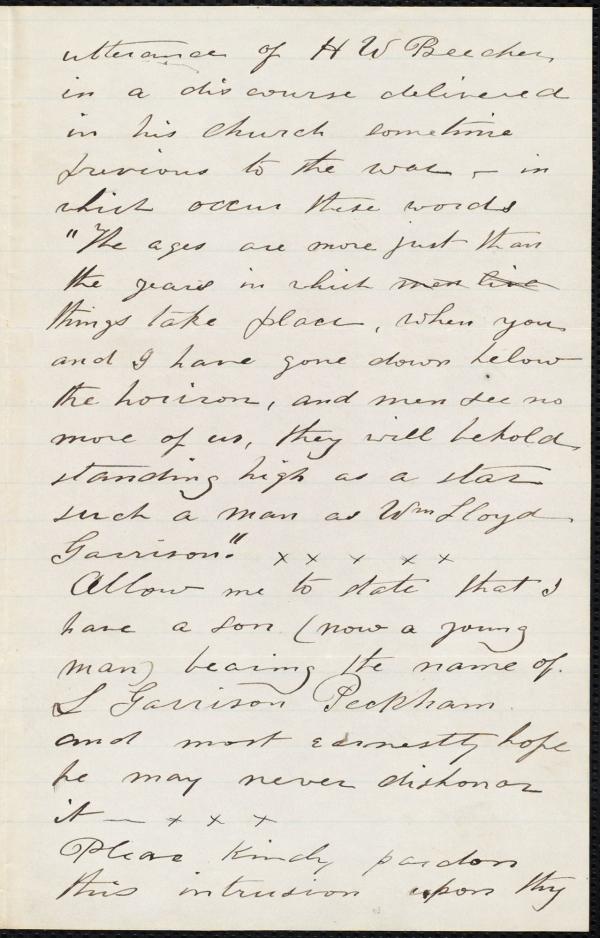 utterance of H W Beecher
in a discourse delivered
in his church sometime
previous to the war – in
which occur these words
"The ages are more just than
the years in which men live
things take place, when you
and I have gone down below
the horizon, and men see no
more of us, they will behold
standing high as a star
such a man as Wm Lloyd
Garrison." x x x x x
Allow me to state that I
have a son (now a young
man) bearing the name of
L Garrison Peckham
and most earnestly hope
he may never dishonor
it — x x x
Please kindly pardon
this intrusion upon thy